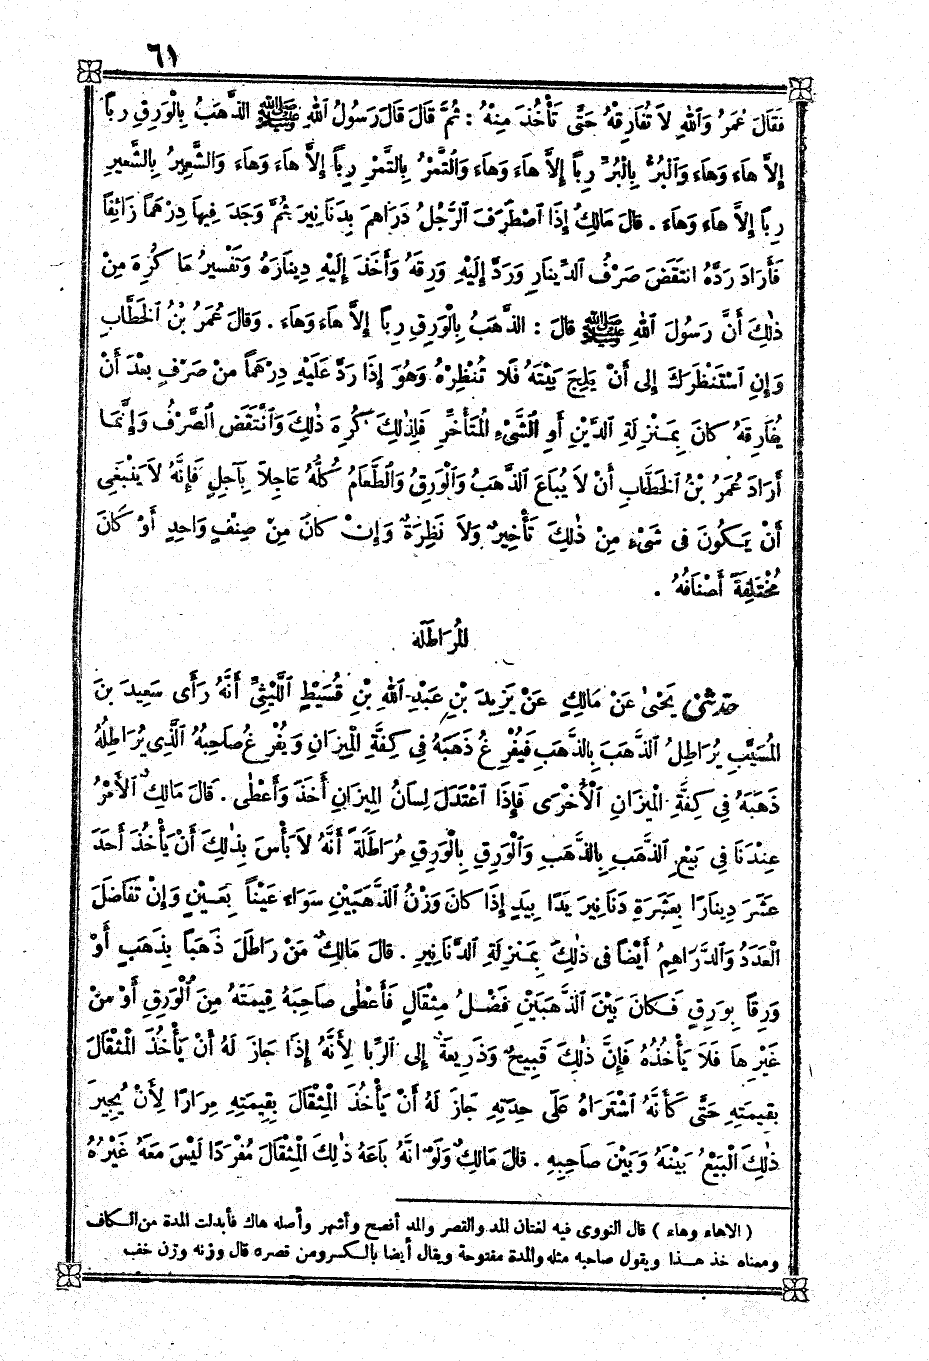 ٦١
فَقَالَ عُمَرُ وَٱللهِ لاَ تُفَارِقْهُ حَتَّى تَأْخُذَ مِنْهُ : ثُمَّ قَالَ قَالَ رَسُولُ ٱللهِ ﷺ ٱلذَّهَبُ بِالْوَرِقِ رِباً
إِلاَّ هَاءَ وَهَاءَ وَٱلْبُرُّ بِالْبُرِّ رِباً إِلاَّ هَاءَ وَهَاءَ وَٱلتَّمْرُ بِالتَّمْرِ رِباً إِلاَّ هَاءَ وَهَاءَ وَالشَّعِيرُ بِالشَّعِيرِ
رِباً إِلاَّ هَاءَ وَهَاءَ . قَالَ مَالِكٌ إِذَا ٱصْطَرَفَ ٱلرَّجُلُ دَرَاهِمَ بِدَنَانِيرَ ثُمَّ وَجَدَ فِيهَا دِرْهَماً زَائِفاً
فَأَرَادَ رَدَّهُ انتَقَضَ صَرْفُ ٱلدِّينَارِ وَرَدَّ إِلَيْهِ وَرِقَهُ وَأَخَذَ إِلَيْهِ دِينَارَهُ وَتَفْسِيرُ مَا كُرِهَ مِنْ
ذٰلِكَ أَنَّ رَسُولَ ٱللهِ ﷺ قَالَ : ٱلذَّهَبُ بِالْوَرِقِ رِباً إِلاَّ هَاءَ وَهَاءَ . وَقَالَ عُمَرُ بْنُ ٱلخَطَّابِ
وَإِنِ ٱسْتَنْظَرَكَ إِلى أَنْ يَلِجَ بَيْتَهُ فَلَا تُنْظِرْهُ وَهُوَ إِذَا رَدَّ عَلَيْهِ دِرْهَماً مِنْ صَرْفٍ بَعْدَ أَنْ
يُفَارِقَهُ كَانَ بِمَنْزِلَةِ ٱلدَّيْنِ أَوِ ٱلشَّيْءِ ٱلمُتَأَخِّرِ فَلِذٰلِكَ كُرِهَ ذٰلِكَ وَٱنْتَقَضَ ٱلصَّرْفُ وَإِنَّمَا
أَرَادَ عُمَرُ بْنُ ٱلخَطَّابِ أَنْ لاَ يُبَاعَ ٱلذَّهَبُ وَٱلْوَرِقُ وَٱلطَّعَامُ كُلُّهُ عَاجِلاً بِآجِلٍ فَإِنَّهُ لاَ يَنْبَغِى
أَنْ يَكُونَ فى شَىْءٍ مِنْ ذٰلِكَ تَأْخِيرٌ وَلاَ نَظِرَةٌ وَإِنْ كَانَ مِنْ صِنْفٍ وَاحِدٍ أَوْ كَانَ
مُخْتَلِفَةً أَصْنَافُهُ .
المُرَاطَلَة
حَدَّثَنِى يَحْيٰ عَنْ مَالِكٍ عَنْ يَزِيدَ بْنِ عَبْدِ ٱللهِ بْنِ قُسَيْطٍ ٱللَّيْثِيِّ أَنَّهُ رَأَى سَعِيدَ بنَ
المُسَيَّبِ يُرَاطِلُ ٱلذَّهَبَ بِالذَّهَبِ فَيُفْرِغُ ذَهَبَهُ فِي كِفَّةِ المِيزَانِ وَيُفْرِغُ صَاحِبُهُ ٱلَّذِى يُرَاطِلُهُ
ذَهَبَهُ فِي كِفَّةِ المِيزَانِ ٱلْأُخْرَى فَإِذَا ٱعْتَدَلَ لِسَانُ المِيزَانِ أَخَذَ وَأَعْطٰى . قَالَ مَالِكٌ ٱلأَمْرُ
عِنْدَنَا فِي بَيْعِ ٱلذَّهَبِ بِالذَّهَبِ وَٱلْوَرِقِ بِالْوَرِقِ مُرَاطَلَةً أَنَّهُ لاَ بَأْسَ بِذٰلِكَ أَنْ يَأْخُذَ أَحَدَ
عَشَرَ دِينَارًا بِعَشَرَةِ دَنَانِيرَ يَدًا بِيَدٍ إِذَا كَانَ وَزْنُ ٱلذَّهَبَيْنِ سَوَاءً عَيْناً بِعَيْنٍ وَإِنْ تَفَاضَلَ
الْعَدَدُ وَٱلدَّرَاهِمُ أَيْضاً فى ذٰلِكَ بِمَنْزِلَةِ ٱلدَّنَانِيرِ . قَالَ مَالِكٌ مَنْ رَاطَلَ ذَهَباً بِذَهَبٍ أَوْ
وَرِقاً بِوَرِقٍ فَكَانَ بَيْنَ ٱلذَّهَبَيْنِ فَضْلُ مِثْقَالٍ فَأَعْطٰى صَاحِبَهُ قِيمَتَهُ مِنَ ٱلْوَرِقِ أَوْ مِنْ
غَيْرِهَا فَلَا يَأْخُذُهُ فَإِنَّ ذٰلِكَ قَبِيحٌ وَذَرِيعَةٌ إِلى ٱلرِّبَا لِأَنَّهُ إِذَا جَازَ لَهُ أَنْ يَأْخُذَ الْمِثْقَالَ
بِقِيمَتِهِ حَتَّى كَأَنَّهُ ٱشْتَرَاهُ عَلَى حِدَتِهِ جَازَ لَهُ أَنْ يَأْخُذَ الْمِثْقَالَ بِقِيمَتِهِ مِرَارًا لِأَنْ يُجِيزَ
ذٰلِكَ الْبَيْعُ بَيْنَهُ وَبَيْنَ صَاحِبِهِ . قَالَ مَالِكٌ وَلَوْ انَّهُ بَاعَهُ ذٰلِكَ الْمِثْقَالَ مُفْرَدًا لَيْسَ مَعَهُ غَيْرُهُ
( الاهاء وهاء ) قال النووى فيه لغتان المد والقصر والمد أفصح وأشهر وأصله هاك فأبدلت المدة من الكاف
ومعناه خذ هذا ويقول صاحبه مثله والمدة مفتوحة ويقال أيضا بالكسر ومن قصره قال وزنه وزن خف